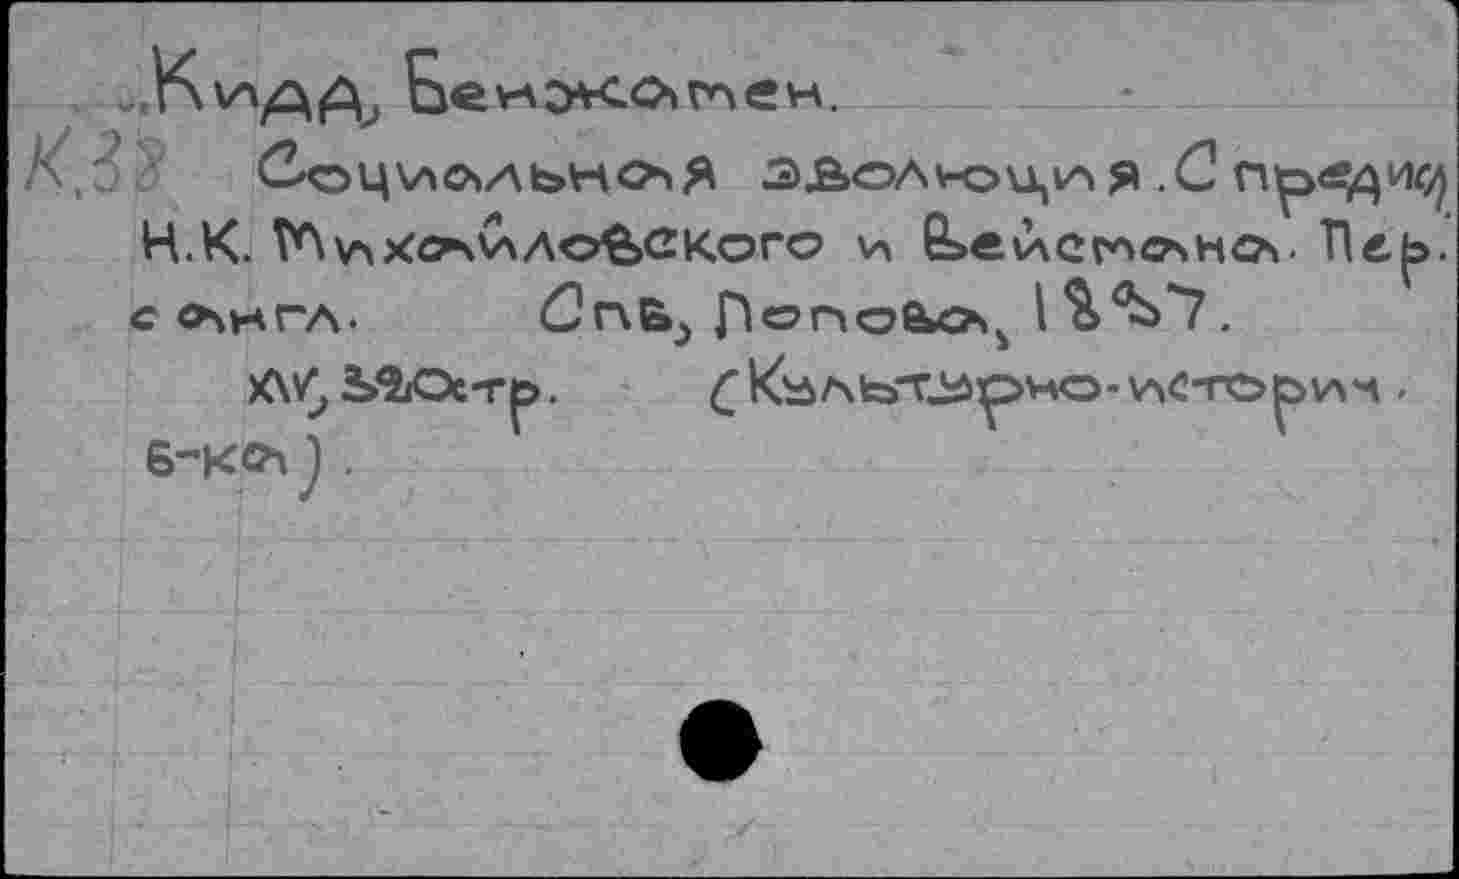 Кидд, Бенжамен.
К.33 Социальная эволюция. С предисл
Н.К. Михайловского и Вейсмана. Пер.
с англ. СПБ, Попова, 1897.
XV, 320 стр. (Культурно-историч.
б-ка).